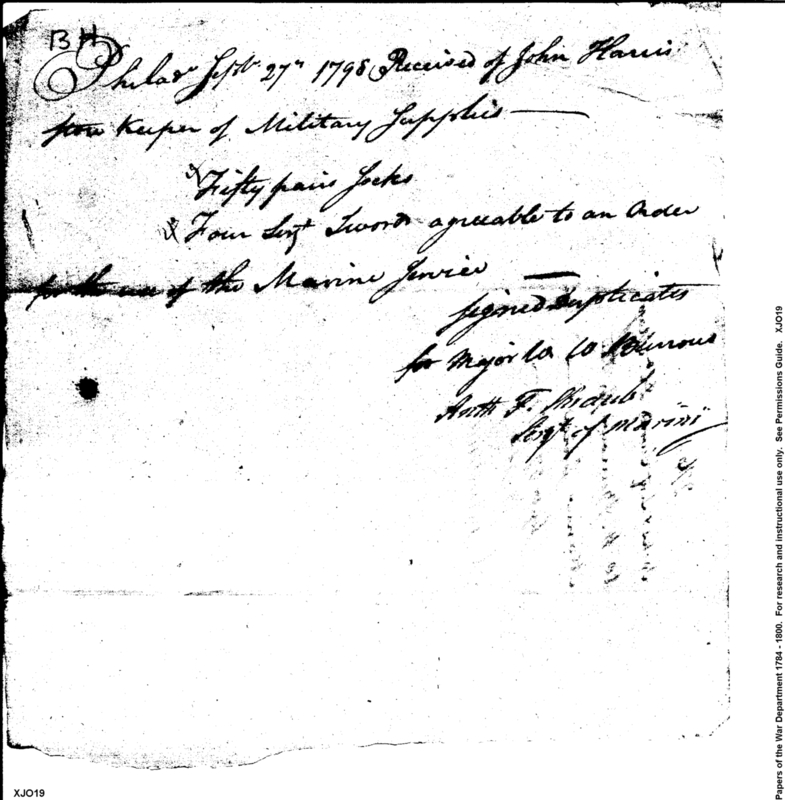 BH
Philada Septr 27th 1798 Received of John Harris
store Keeper of Military Supplies
Fifty pairs Socks
Four Sergt Swords agreeable to an Order
for the use of the Marine Service
signed Duplicates
for Major W W Burrows
Anth F.
Sergt of Marins
Papers of the War Department 1784 - 1800. For research and instructional use only. See Permissions Guide. XJO19
XJO19